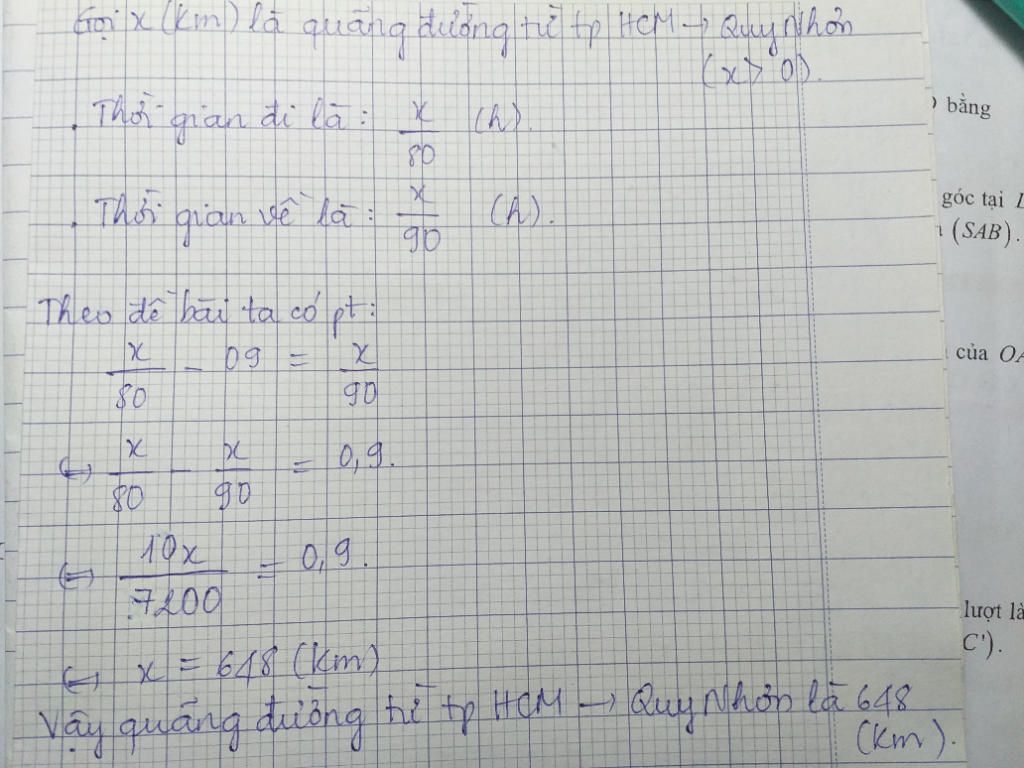 Gọi x (km) là quãng đường từ tp HCM → Quy Nhơn
(x > 0).
. Thời gian đi là: x/80 (h).
. Thời gian về là: x/90 (h).
Theo đề bài ta có pt:
x/80 - 09 = x/90
↔ x/80 - x/90 = 0,9.
↔ 10x/7200 = 0,9.
↔ x = 648 (km)
Vậy quãng đường từ tp HCM → Quy Nhơn là 648
(km).
bằng
góc tại
(SAB).
của OA
lượt là
C').